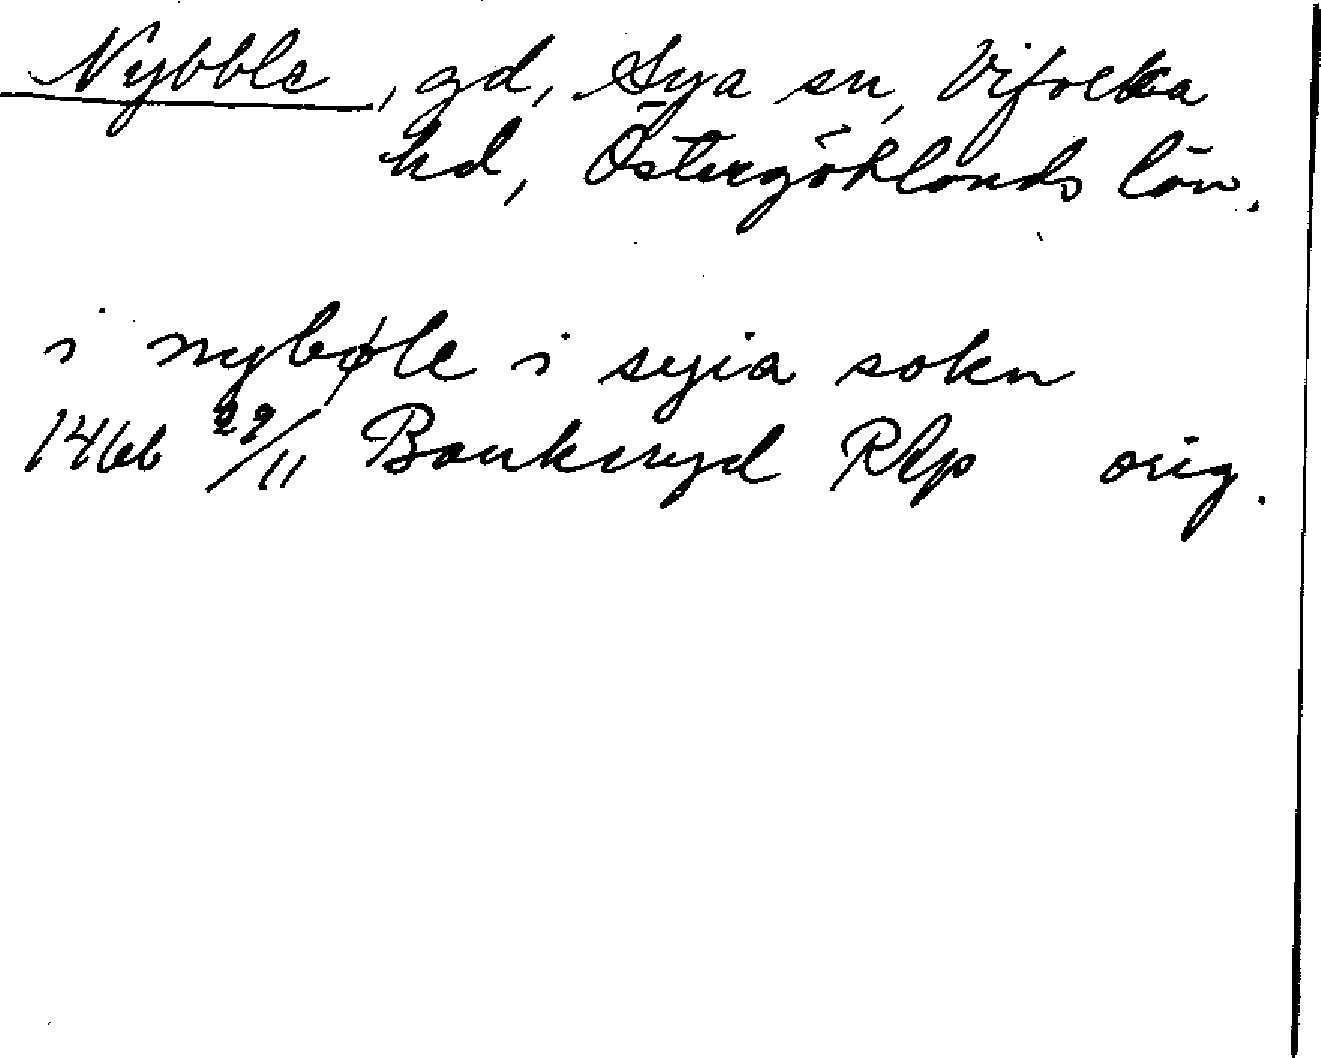 Nybble, gd, Sya sn, Vifolka
hd, Östergötlands län.
i nybøle i syia sokn
1466 29/11 Bankeryd RAp orig.